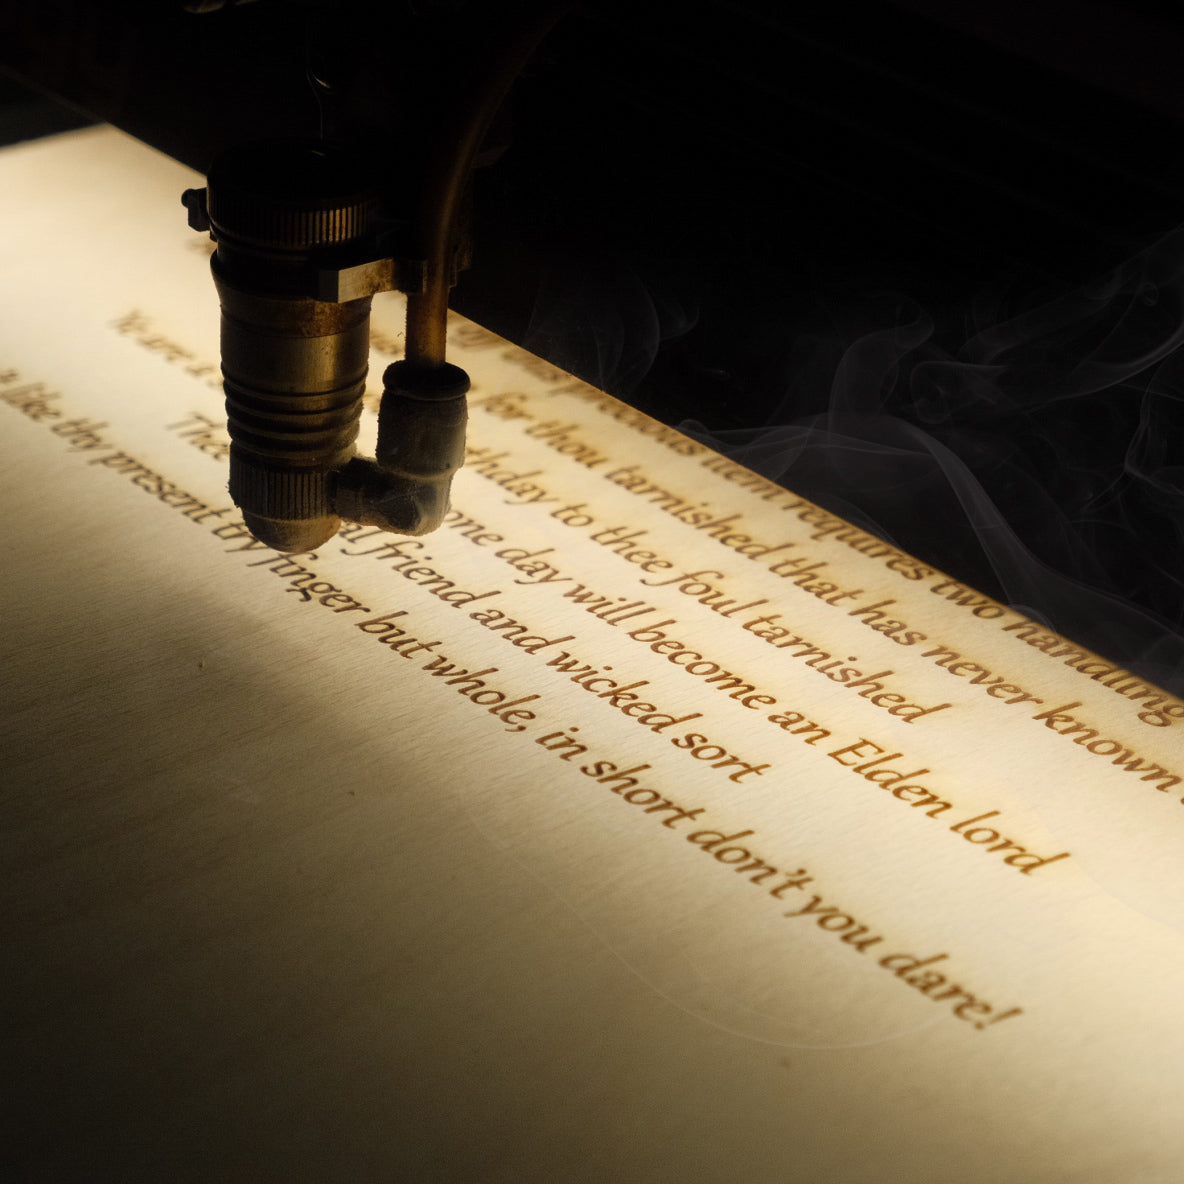 item requires two handling
for thou tarnished that has never known
to thee foul tarnished
Ye are a one day will become an Elden lord
friend and wicked sort
like thy present try finger but whole, in short don't you dare!